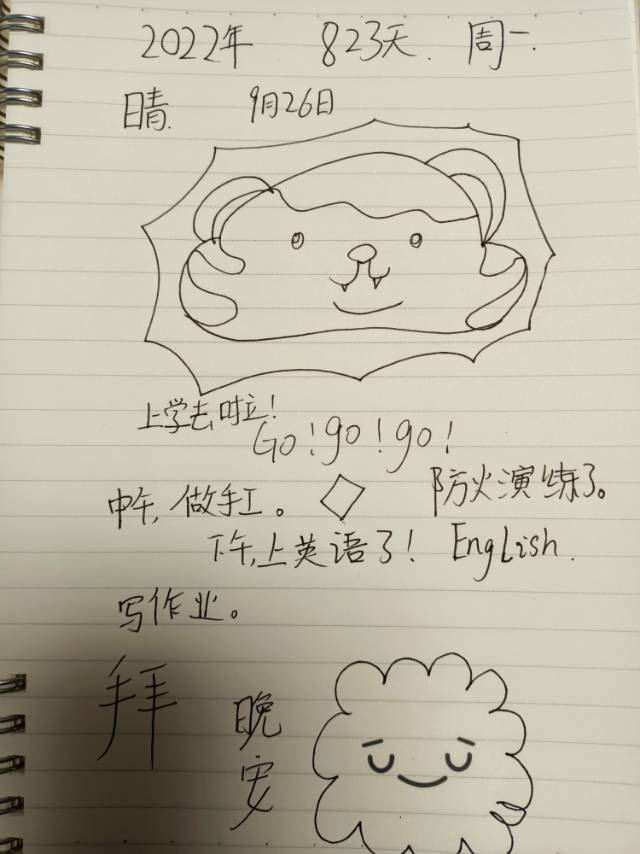 2022年 823天. 周一.
晴. 9月26日
上学去啦!
Go!go!go!
中午,做手工。 防火演练了。
下午,上英语了! English.
写作业。
拜
晚安